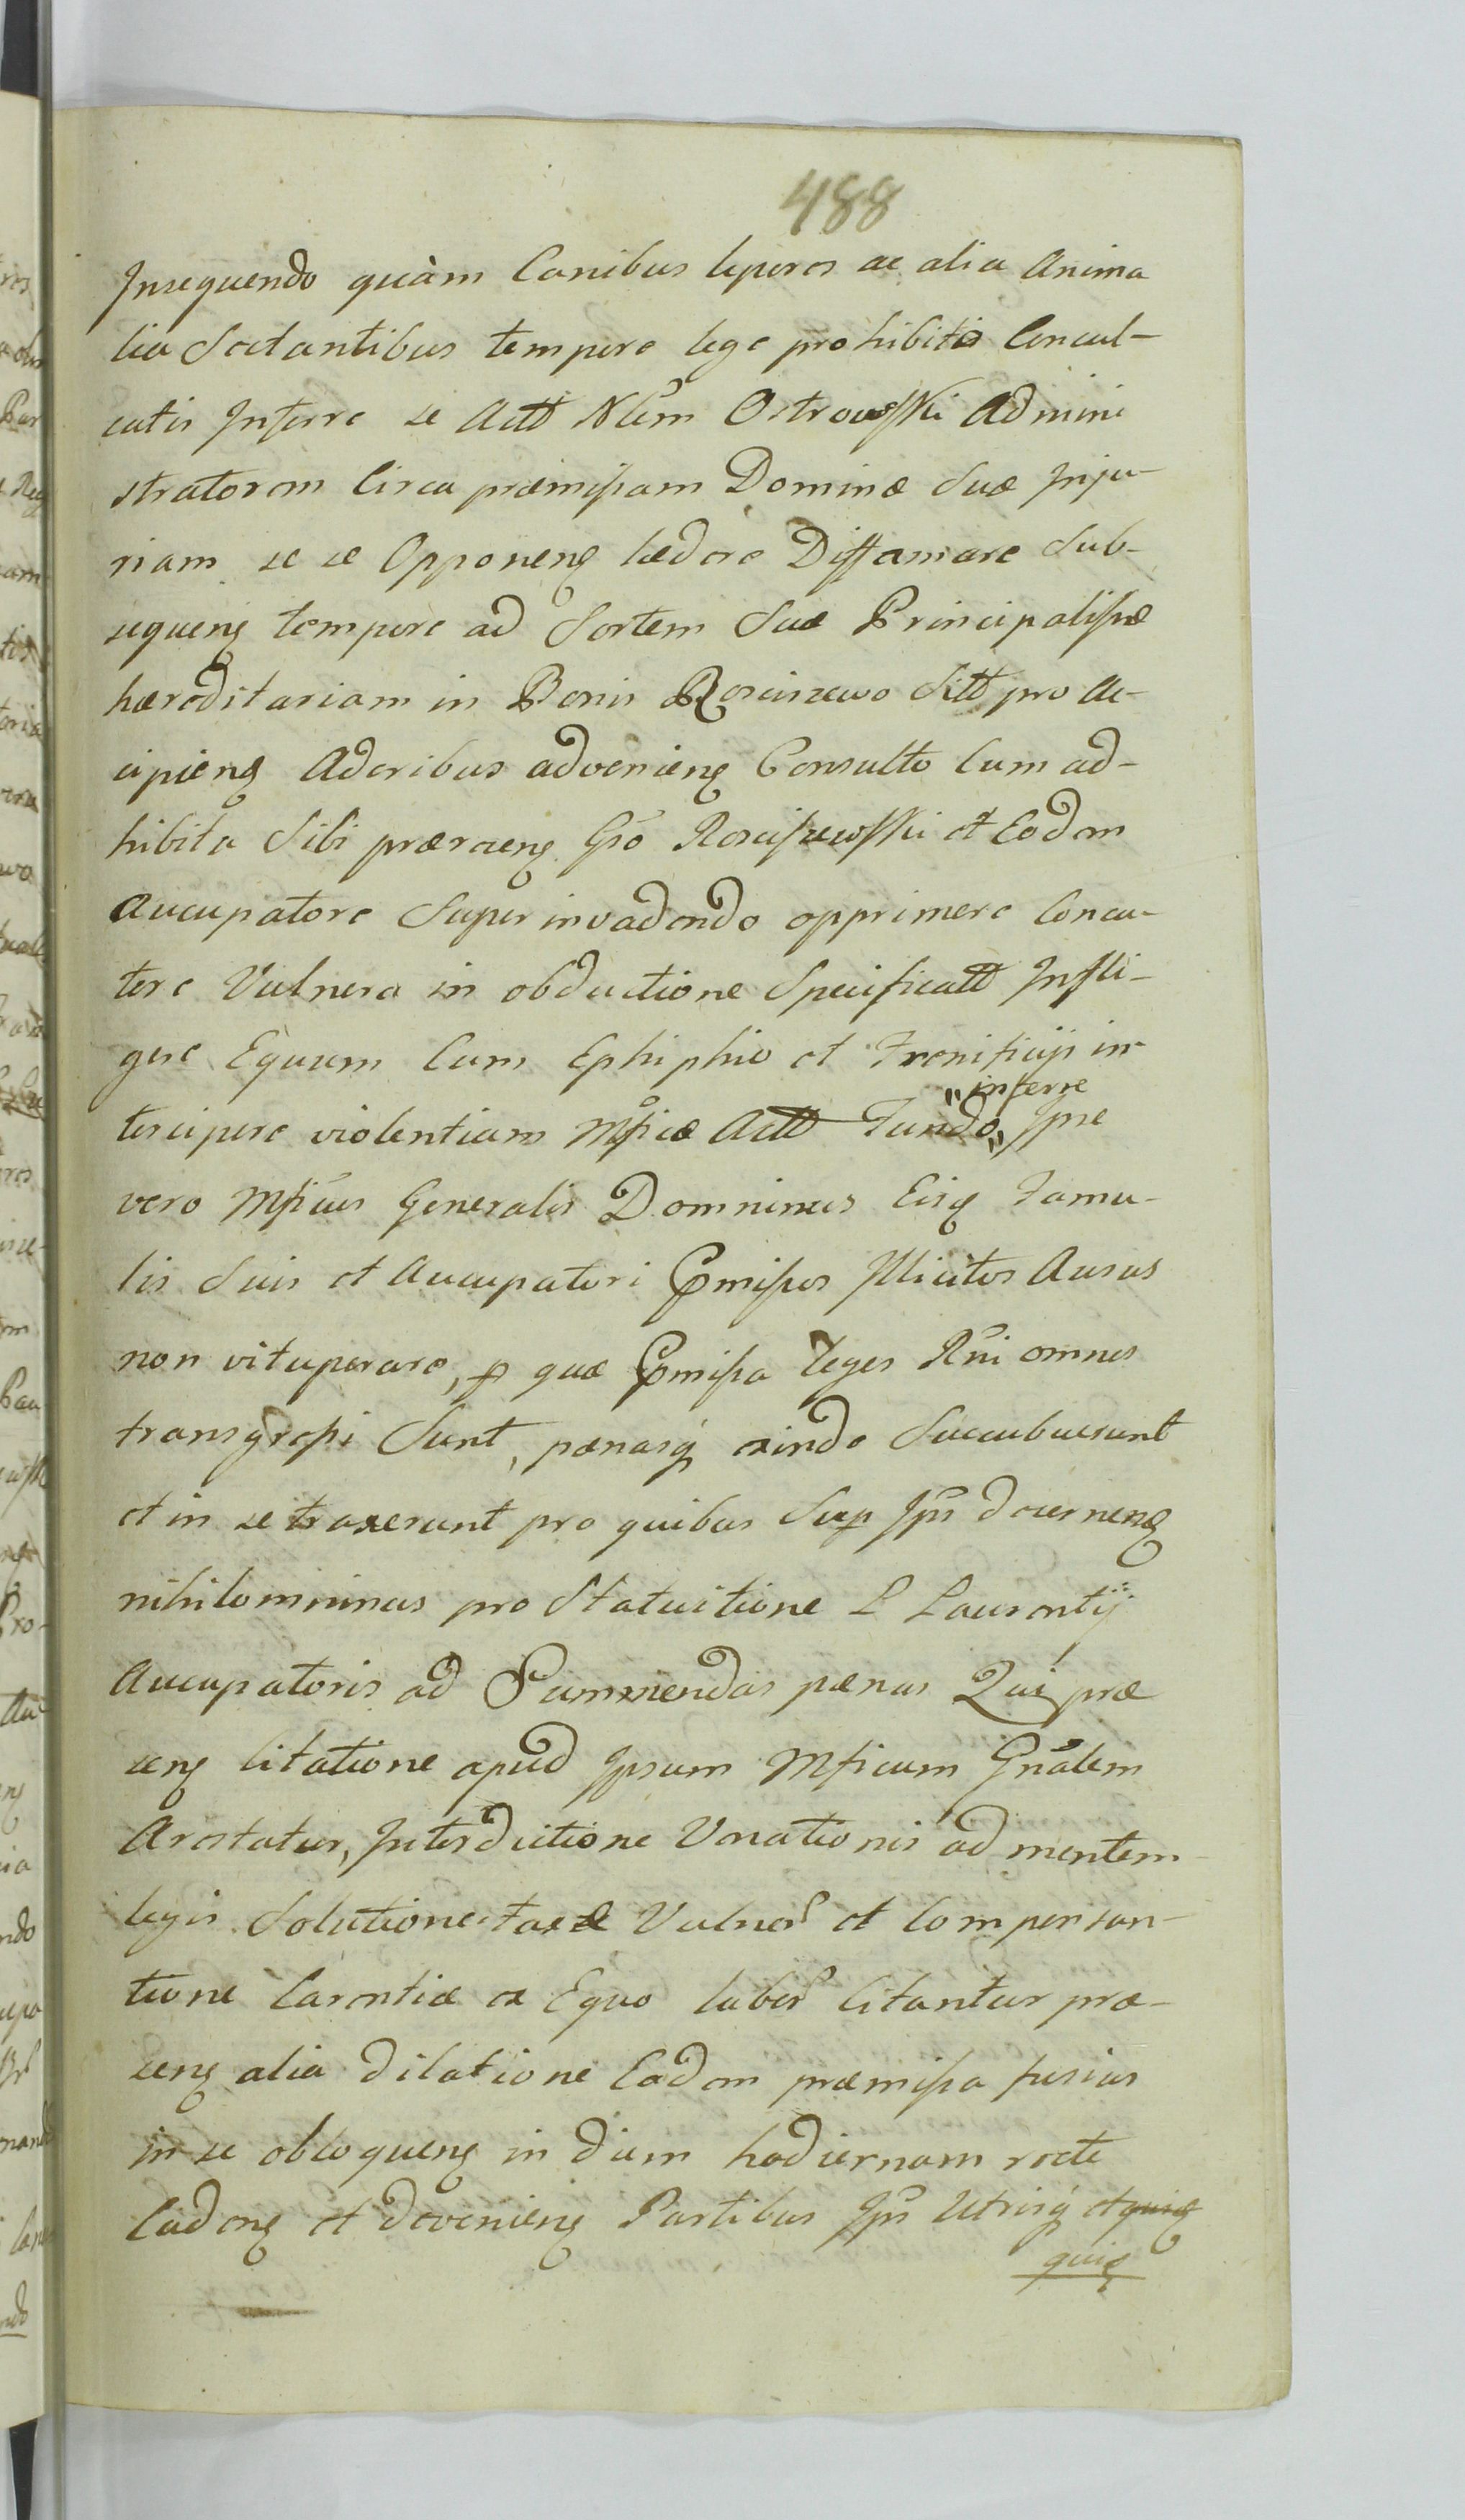 488
Insequendo quàm Canibus lepores ac alia Anima
lia Sectantibus tempore lege prohibito Concul-
catis Inferre se Actt Nlem Ostrowski Admini
stratorem Circa præmissam Dominæ Suæ Inju-
riam se se Opponeng lædere Diffamare Sub-
sequeng tempore ad Sortem Suæ Principalissæ
hæreditariam in Bonis Rosciszewo Sitt pro ac-
cipieng Aderibus advenieng Consulto Cum ad-
hibita Sibi præraeng Gso Rosciszewski et Eodem
Aucupatore Super invadendo opprimere Concu-
tere Vulnera in obductione Specificatt Infli-
gere Equum Cum Ephiphio et Frenificijs in
tercipere violentiam Mficæ Actt Fundo " inferre " Ipse
vero Mficus Generalis Domninus Eisq Famu-
lis Suis et Aucupatori Pmissos Illicitos Ausus
non vituperare, p quæ Pmissa Leges Rni omnes
transgressi Sunt, pænasq exinde Succubuerunt
et in se traxerunt pro quibus Sup Ipis decerneng
nihilominus pro Statuitione L Laurentij
Aucupatoris ad Summendas pænas Qui præ
seng Citatione apud Ipsum Mficum Gnalem
Arestatur, Interdictione Venationis ad mentem
legis Solutione taxæ Vulner et Compensan-
tione Carentiæ ex Equo labor Citantur præ-
seng alia Dilatione Eadem præmissa fusius
in se obloqueng in diem hodiernam recte
Cadeng et devenieng Partibus Ips Utrisq et quig
quig